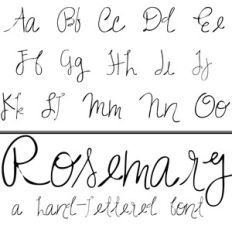 Aa Bb Cc Dd Ee
Ff Gg Hh Ii Jj
Kk Ll Mm Nn Oo
Rosemary
a hand-lettered font